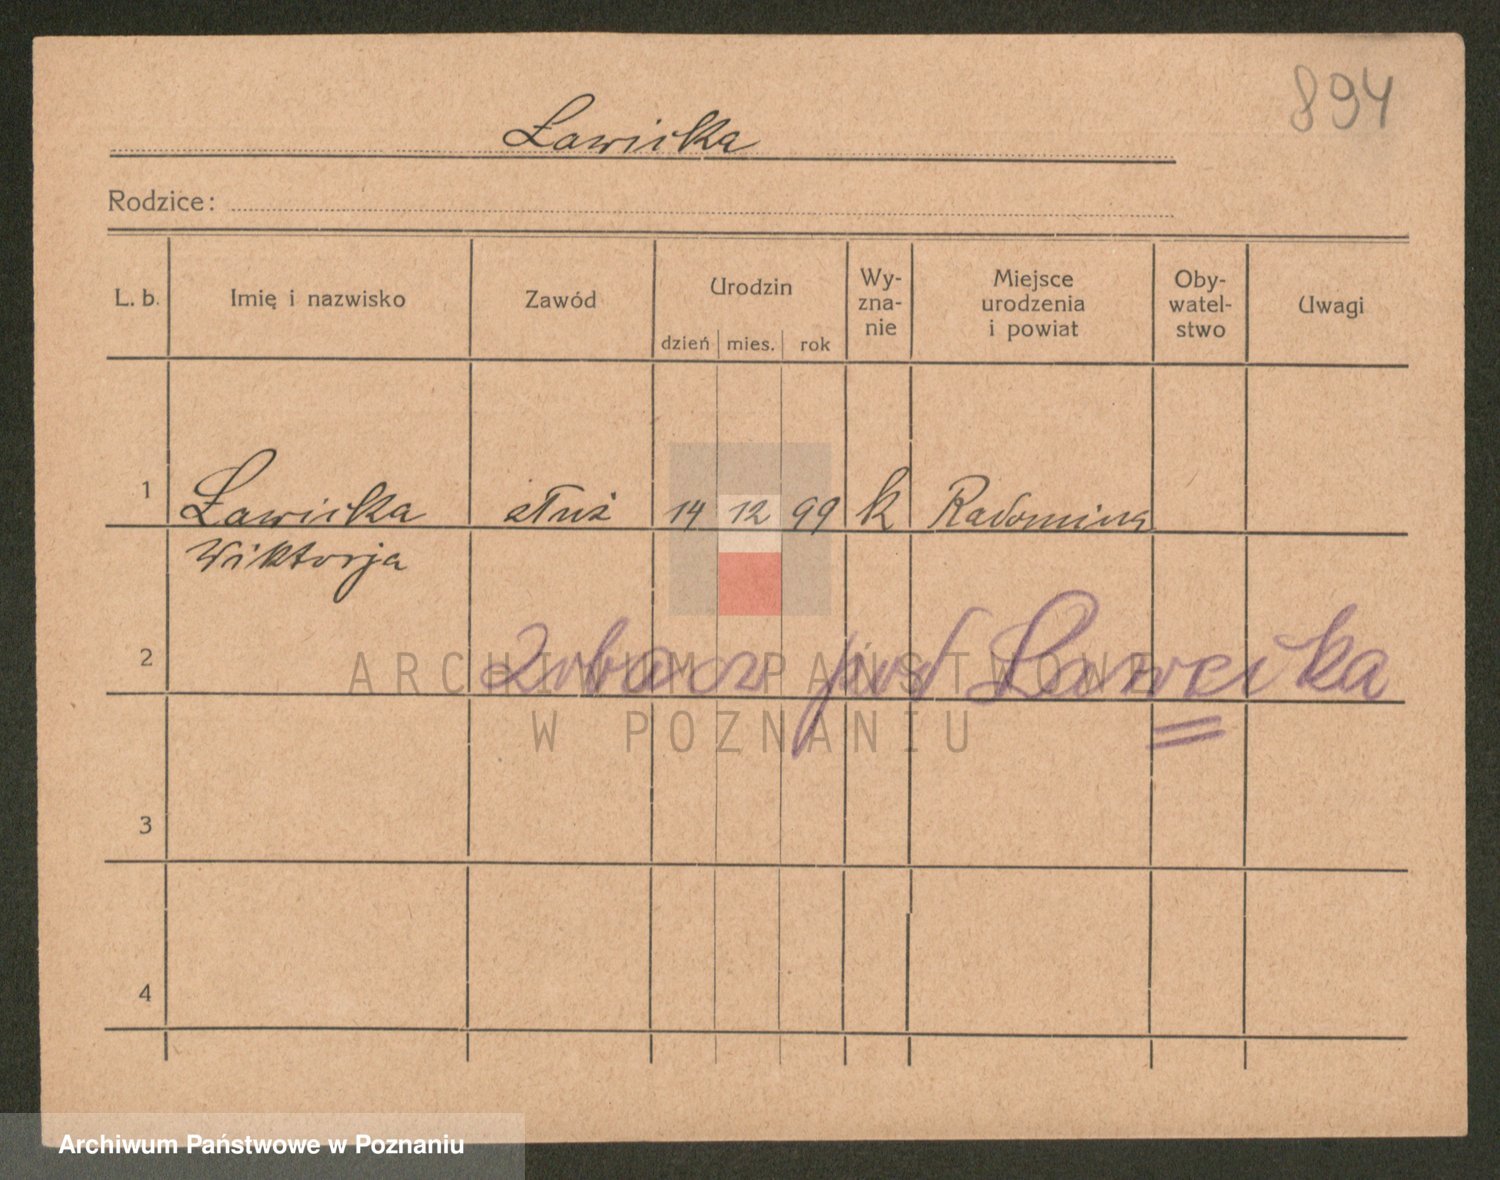 894
Ławicka
Rodzice:
L. b. Imię i nazwisko Zawód Urodzin dzień mies. rok Wy-zna-nie Miejsce urodzenia i powiat Oby-watel-stwo Uwagi
1 Ławicka służ 14 12 99 k Radomina
Wiktorja
2 Zobacz pod Ławcika
3
4
ARCHIWUM PAŃSTWOWE
W POZNANIU
Archiwum Państwowe w Poznaniu